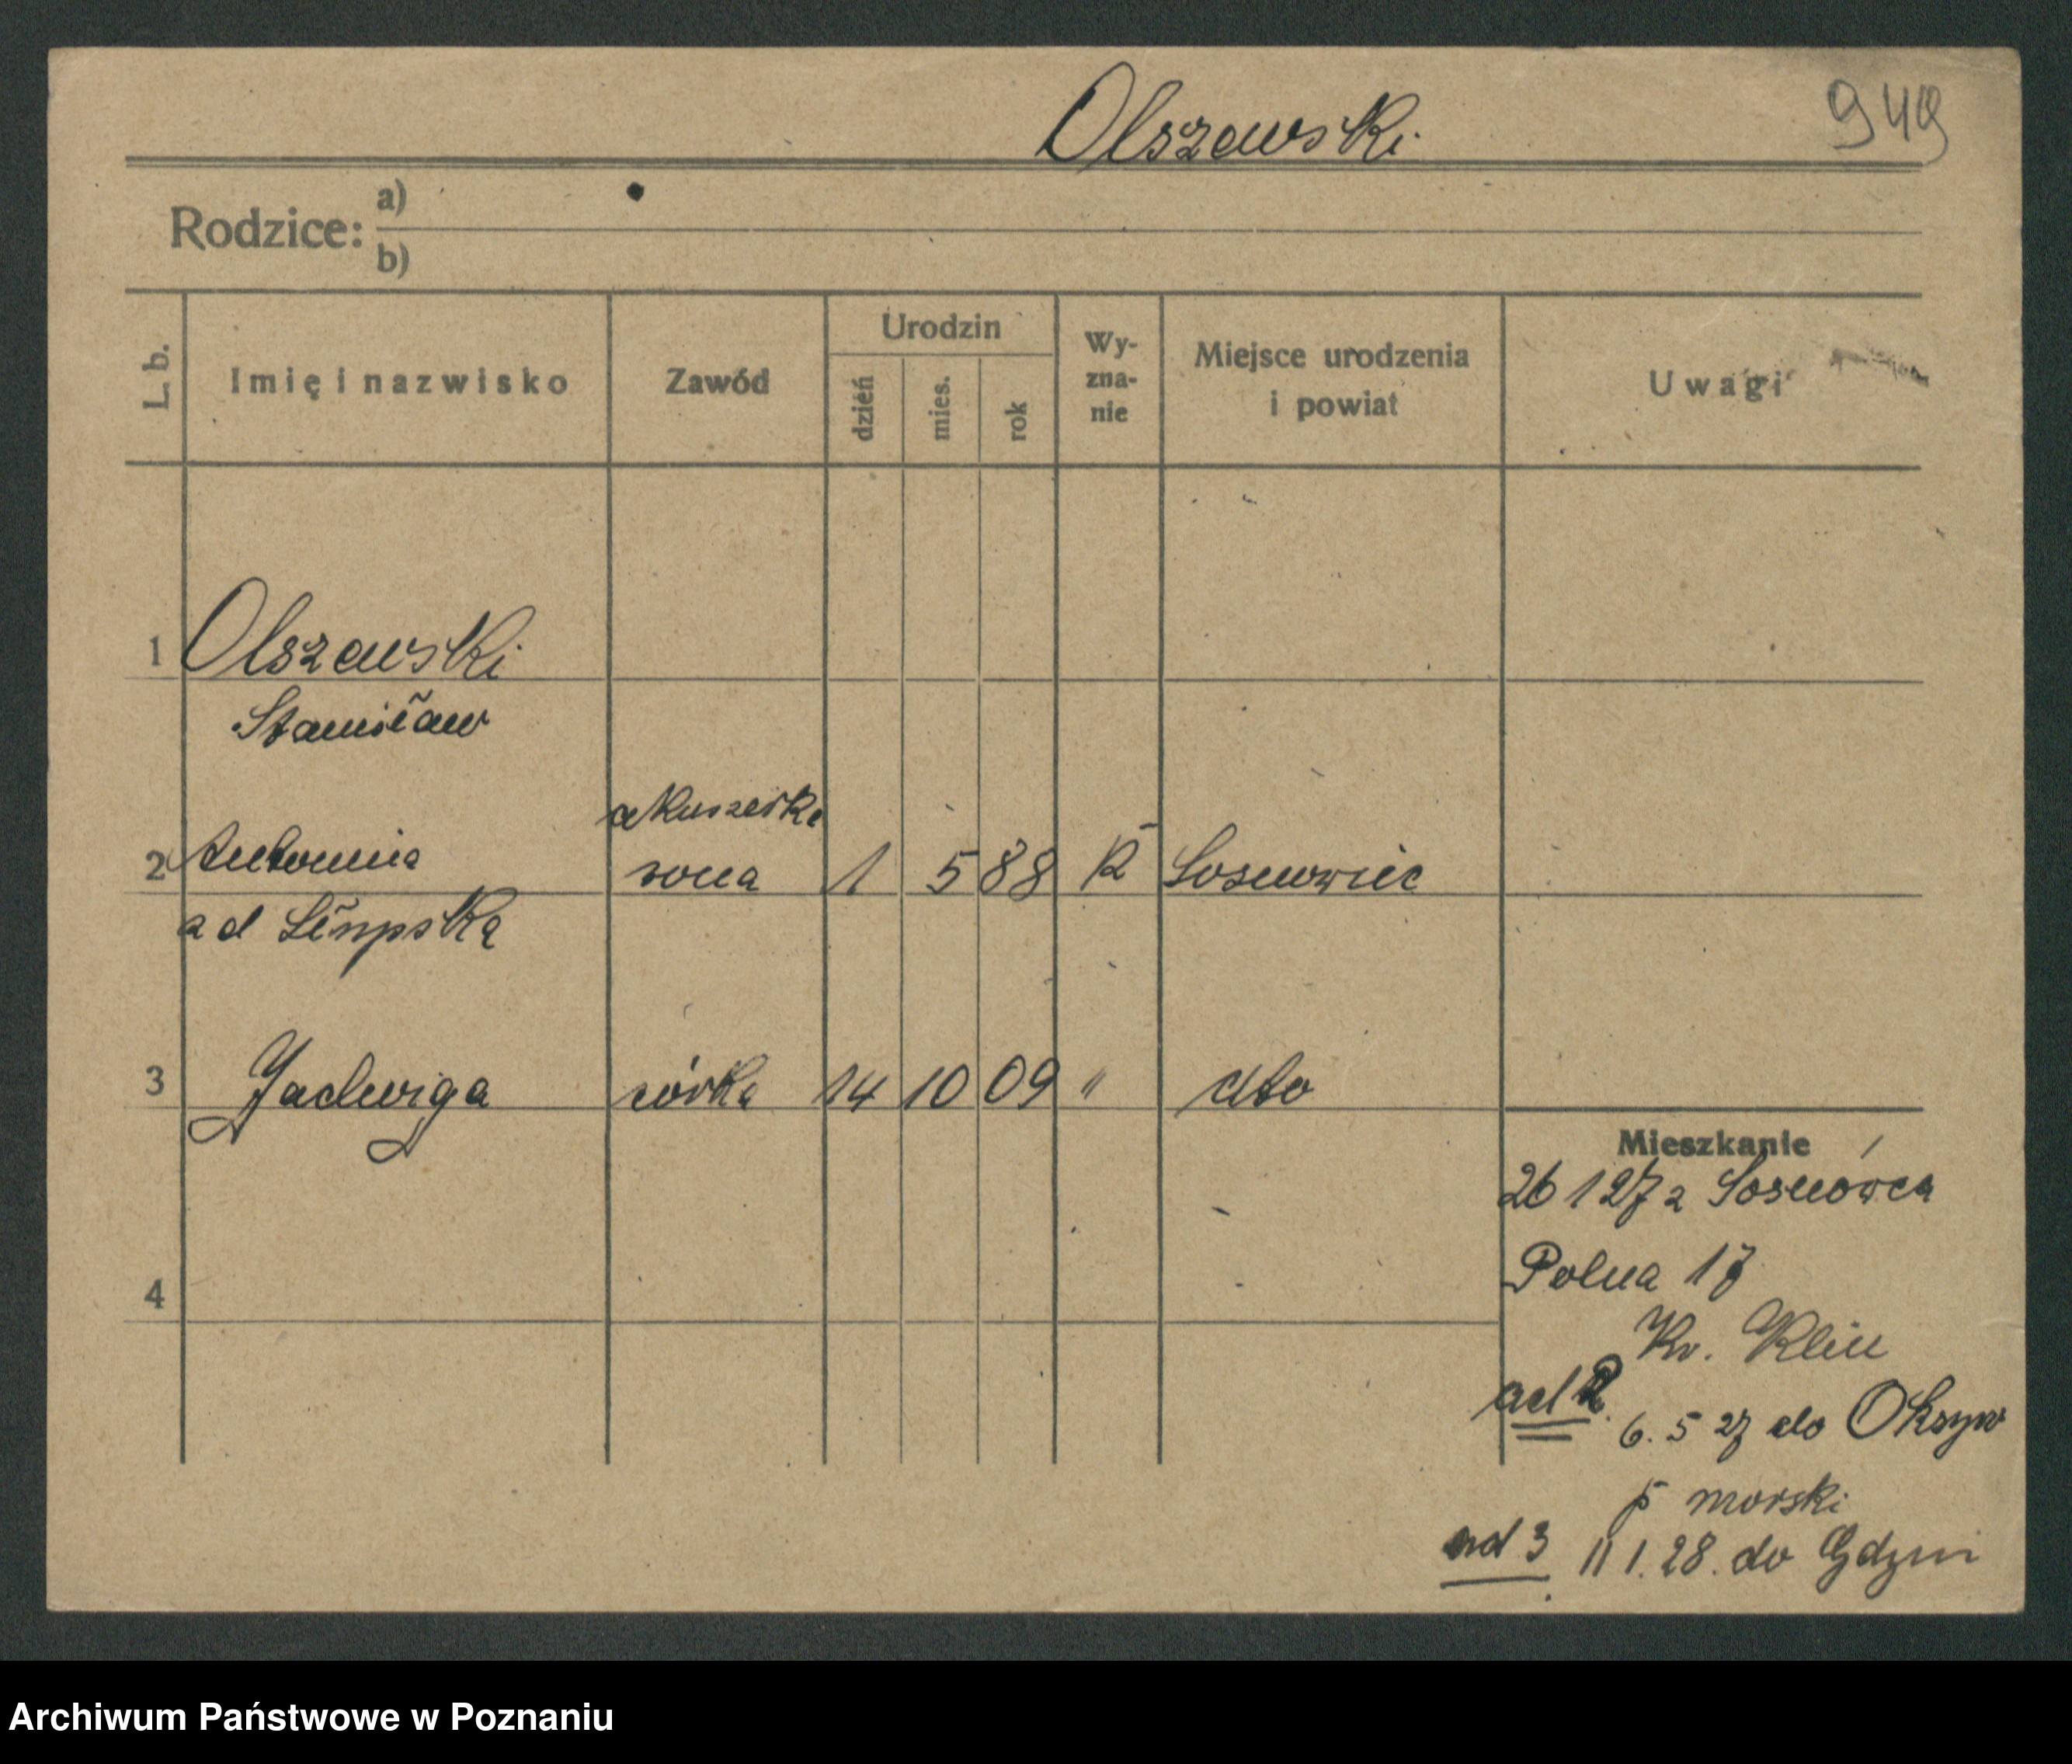 Olszewski
949
Rodzice: a)
b)
L. b.
Imię i nazwisko
Zawód
Urodzin
dzień
mies.
rok
Wy-
zna-
nie
Miejsce urodzenia
i powiat
Uwagi
1 Olszewski
Stanisław
akuszerka
2 Antonina żona 1 5 88 R Sosnowiec
ad
3 Jadwiga córka 14 10 09 " dto
Mieszkanie
26 1 27 z Sosnówca
Polna 17
Kv. Klin
4
ad 2. 6. 5 27 do Oksyw
p morski
ad 3 11 1. 28. do Gdyni
Archiwum Państwowe w Poznaniu